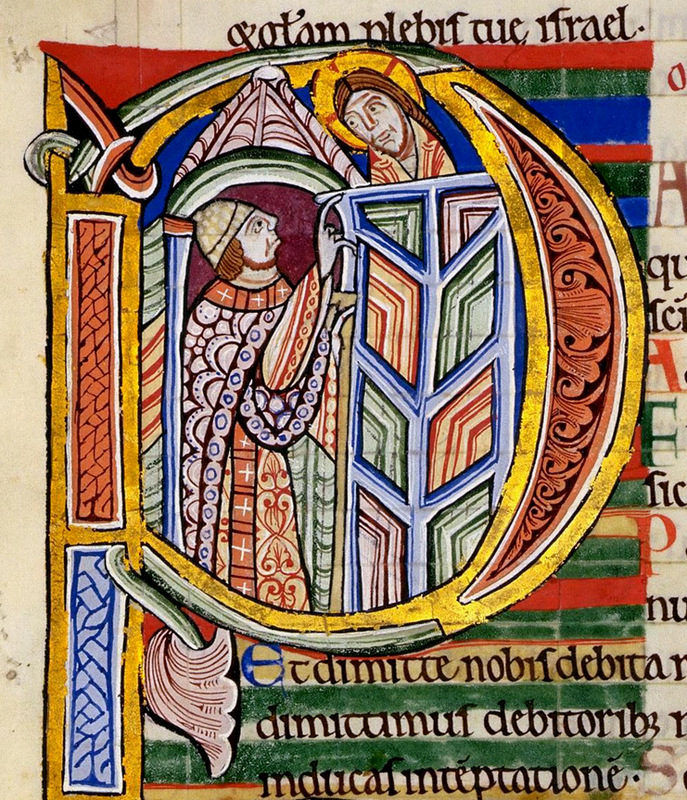 & gl̄am plebiſ tuę iſrael·
P
A
qu
ſci
A
E
ſic
P
nu
Et dimitte nobiſ debita n
dimittimuſ debitoribꝫ n
inducaſ intēptationē· S